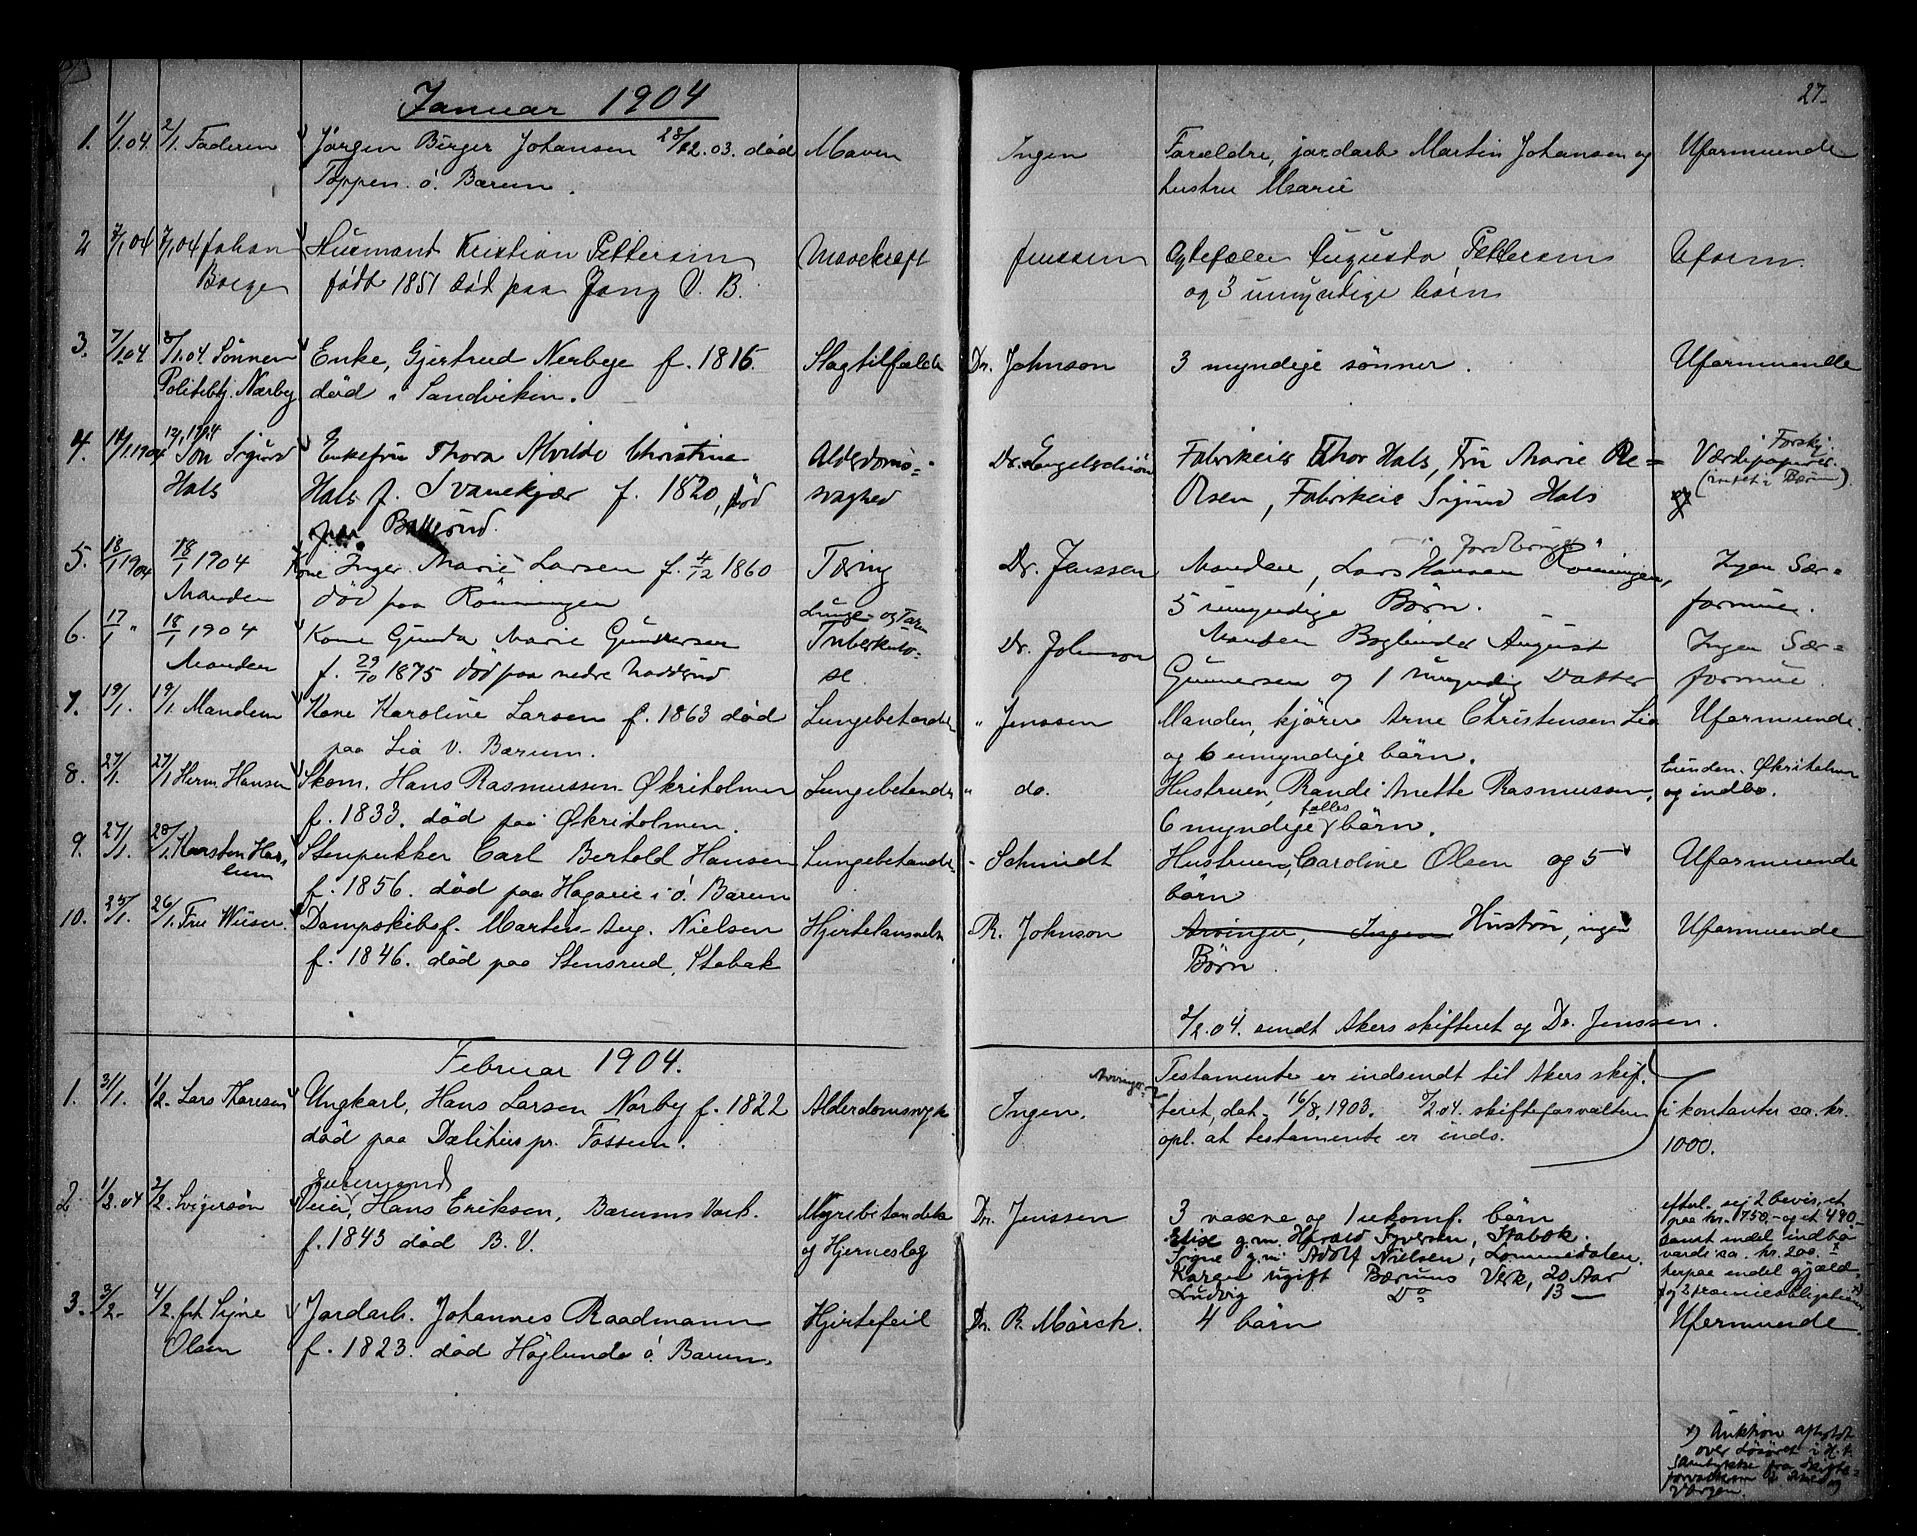 27.
Januar 1904
1. 1/1.04. 2/1. Faderen Jørgen Birger Johansen 28/12.03. død Maven Ingen Forældre, jordarb. Martin Johansen og Uformuende
Toppen ø. Bærum. hustru Marie
2 7/1 04 7/1 04 Johan Husmand Kristian Pettersen Mavekræft Jenssen Ægtefælle Augusta Pettersen Uform.
Borgen født 1851 død paa Jong V. B. og 3 umyndige børn
3. 7/1.04 8/1.04. Sønnen Enke, Gjertrud Nerbye f. 1816. Slagtilfælde Dr. Johnson 3 myndige sønner. Uformuende
Politibtj. Nærby død i Sandviken.
4. 10/1.1904 12/1.1904 Søn Sigurd Enkefru Thora Alvilde Christine Alderdoms- Dr. Engelschiøn Fabrikeier Thor Hals, Fru Marie Re- Forskj. Værdipapirer
Hals Hals f. Svanekjær f. 1820, død svaghed Olsen, Fabrikeier Sigurd Hals (intet i Bærum)
paa Ballerud.
5. 18/1 1904 18/1 1904 Kone Inger Marie Larsen f. 4/12 1860 Tæring Dr. Jenssen Manden, Jordbruger Lars Hansen Rönningen, Ingen Sær-
Manden død paa Rönningen 5 umyndige Børn. formue.
6. 17/1 " 18/1 1904 Kone Gunda Marie Gundersen Lunge- og Tarm Tuberkulo- Dr. Johnson Manden Bogbinder August Ingen Sær-
Manden f. 29/10 1875 død paa nedre Nadderud se Gundersen og 1 umyndig Datter formue.
7. 19/1. 19/1. Manden Kone Karoline Larsen f. 1863 død Lungebetændelse " Jenssen Manden, kjører Arne Christensen Lia Uformuende.
paa Lia V. Bærum. og 6 umyndige børn.
8. 27/1. 27/1 Herm. Hansen Skom. Hans Rasmussen Økriholmen Lungebetændelse " do. Hustruen, Randi Anette Rasmussen, Eiendom. Økriholmen
f. 1833. død paa Økriholmen. 6 myndige fælles børn. og indbo.
9. 27/1. 28/1. Karsten Has- Stenpukker Carl Bertold Hansen Lungebetændelse - Schmidt Hustruen, Caroline Olsen og 5 Uformuende
lum f. 1856. død paa Hagarie i ø. Bærum børn
10. 25/1. 26/1. Fru Wiiser. Dampskibsf. Marten Aug. Nielsen Hjertelammelse R. Johnson Arvinger, Ingen Hustru, ingen Uformuende
f. 1846. død paa Stensrud, Stabæk Børn
2/2.04. sendt Akers skifteret og Dr. Jenssen.
Februar 1904.
1. 31/1. 1/2. Lars Thoresen Ungkarl, Hans Larsen Norby f. 1822 Alderdomssvgh. Ingen. Arvinger Testamente er indsendt til Akers skif. i kontanter ca. kr.
død paa Dælihus pr. Fossum. teret, dat. 16/8.1903. 5/2 04. skifteforvalteren 1000.
opl. at testamente er inds.
2 1/2.04 2/2. Svigersøn Enkemand Veier, Hans Eriksen, Bærums Værk. Nyrebetændelse Dr. Jenssen 3 voxne og 1 ukonf. børn efterl. sig 2 bevis, et
f. 1843 død B. V. og Hjerneslag Elise g.m. Harald Syversen, Stabæk. paa kr. 1750,- og et 490-
Signe g.m. Adolf Nielsen, Lommedalen. samt endel indbo
Karen ugift Bærums Verk, 20 Aar værdi ca. kr. 200.-
Ludvig Do 13 — herpaa endel gjæld.
og 2 præmieobligationer x)
3. 3/2- 4/2. frk Signe Jordarb. Johannes Raadmann Hjertefeil Dr. R. Mörck. 4 børn Uformuende.
Olsen f. 1823. død Höglunda ø. Bærum.
x) Auktion afholdt
over Løsøret i H. t.
Samtykke fra Skifte-
forvalteren i Aker og
Værgen.